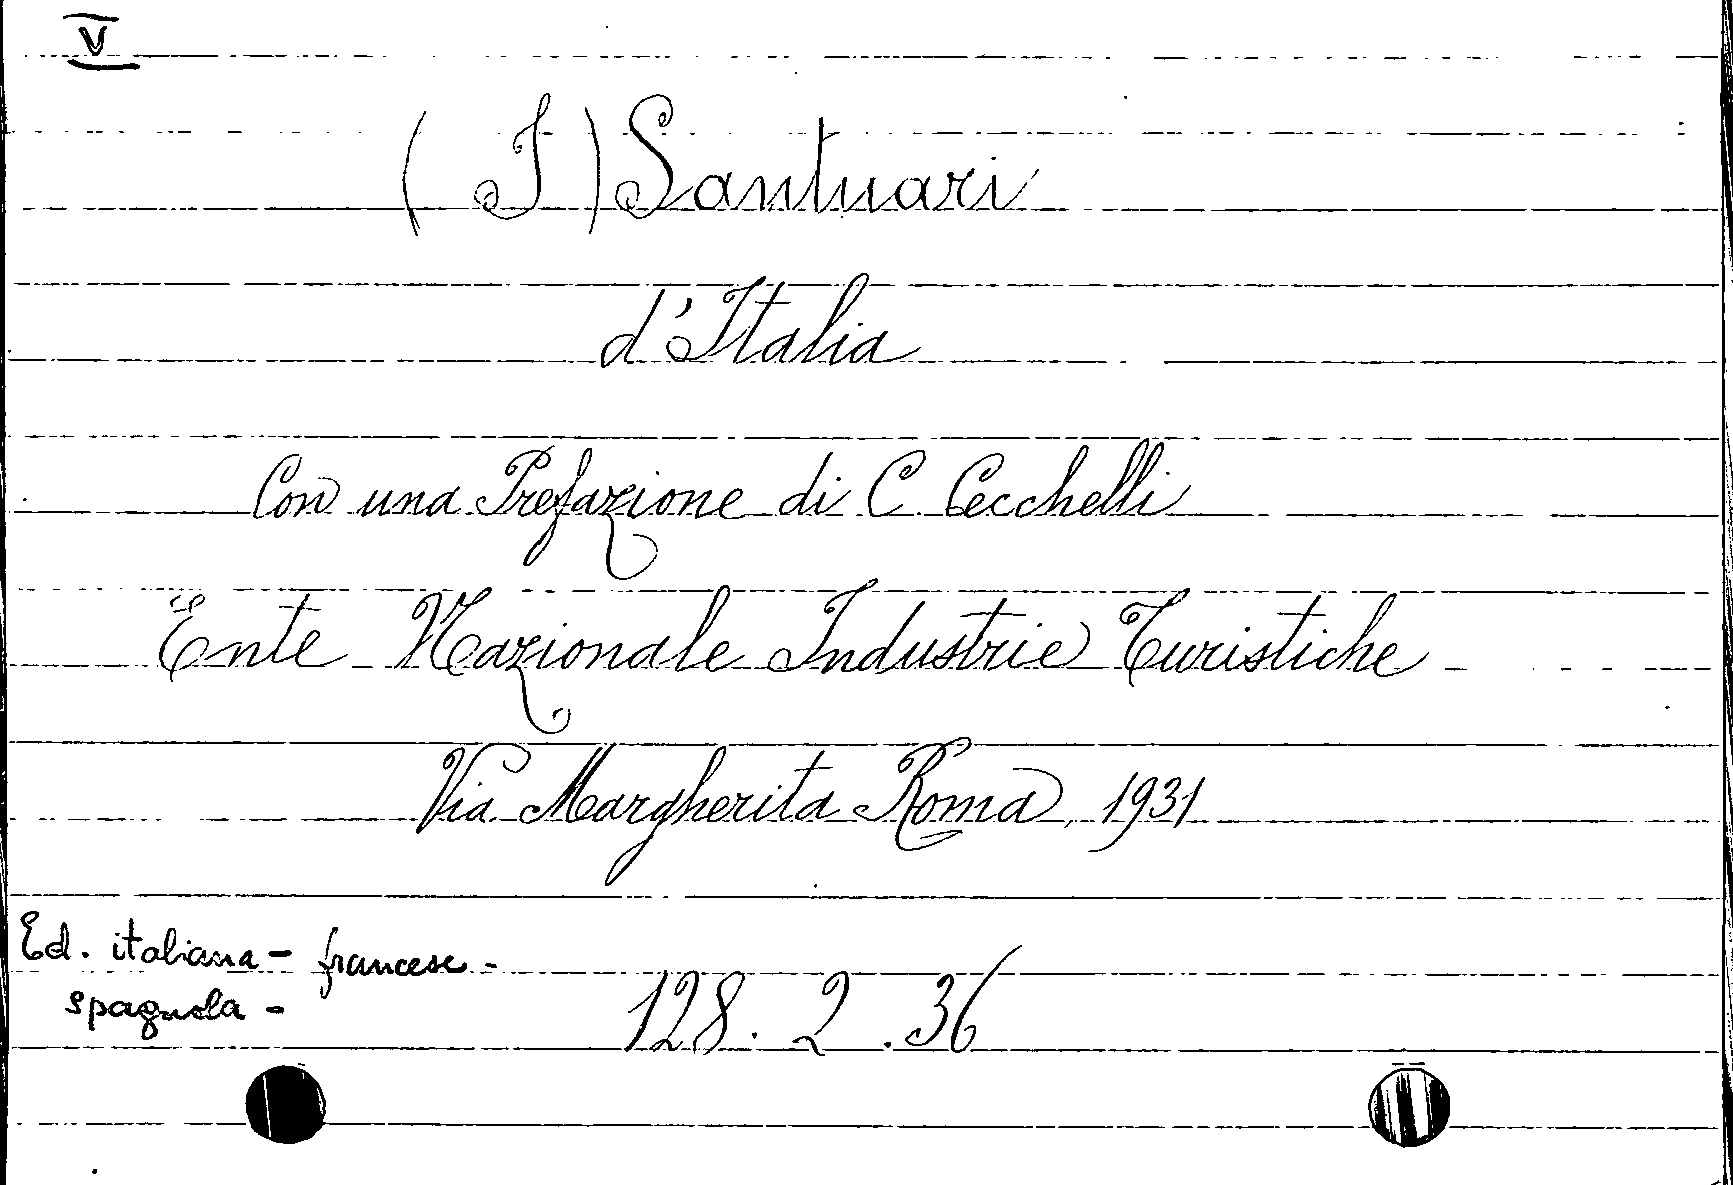 V
(I) Santuari
d'Italia
Con una Prefazione di C Cecchelli
Ente Nazionale Industrie Turistiche
Via Margherita Roma, 1931
Ed. italiana - francese -
spagnola -
128. 2. 36